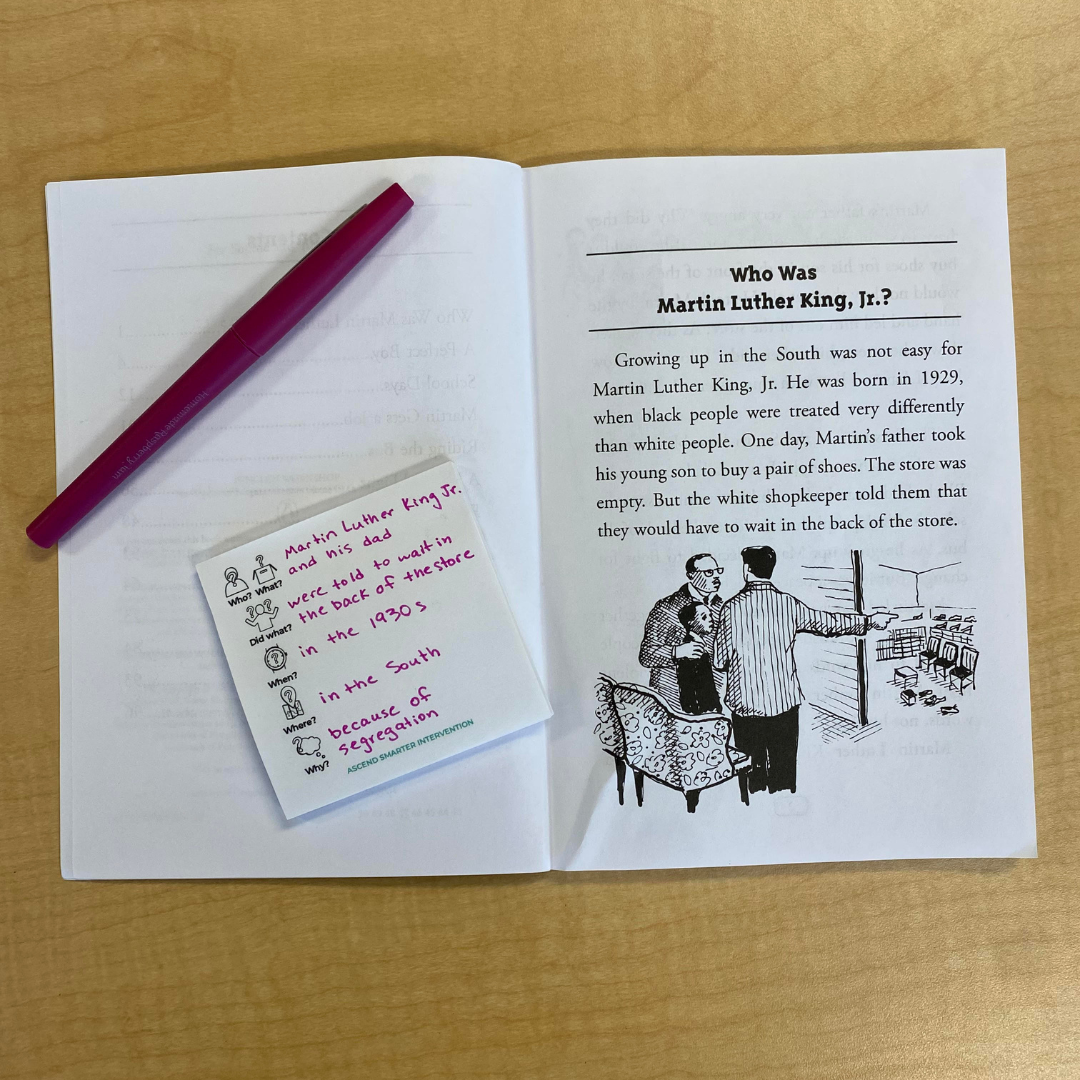 Who Was
Martin Luther King, Jr.?
Growing up in the South was not easy for
Martin Luther King, Jr. He was born in 1929,
when black people were treated very differently
than white people. One day, Martin's father took
his young son to buy a pair of shoes. The store was
empty. But the white shopkeeper told them that
they would have to wait in the back of the store.
Who? What?
Martin Luther King Jr.
and his dad
Did what?
were told to wait in
the back of the store
When?
in the 1930s
Where?
in the South
Why?
because of
segregation
ASCEND SMARTER INTERVENTION